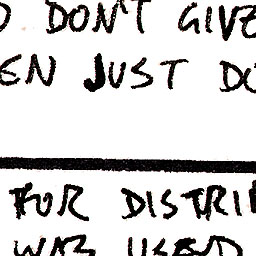 DON'T GIVE
EN JUST DO
FOR DISTRI
WAS USED